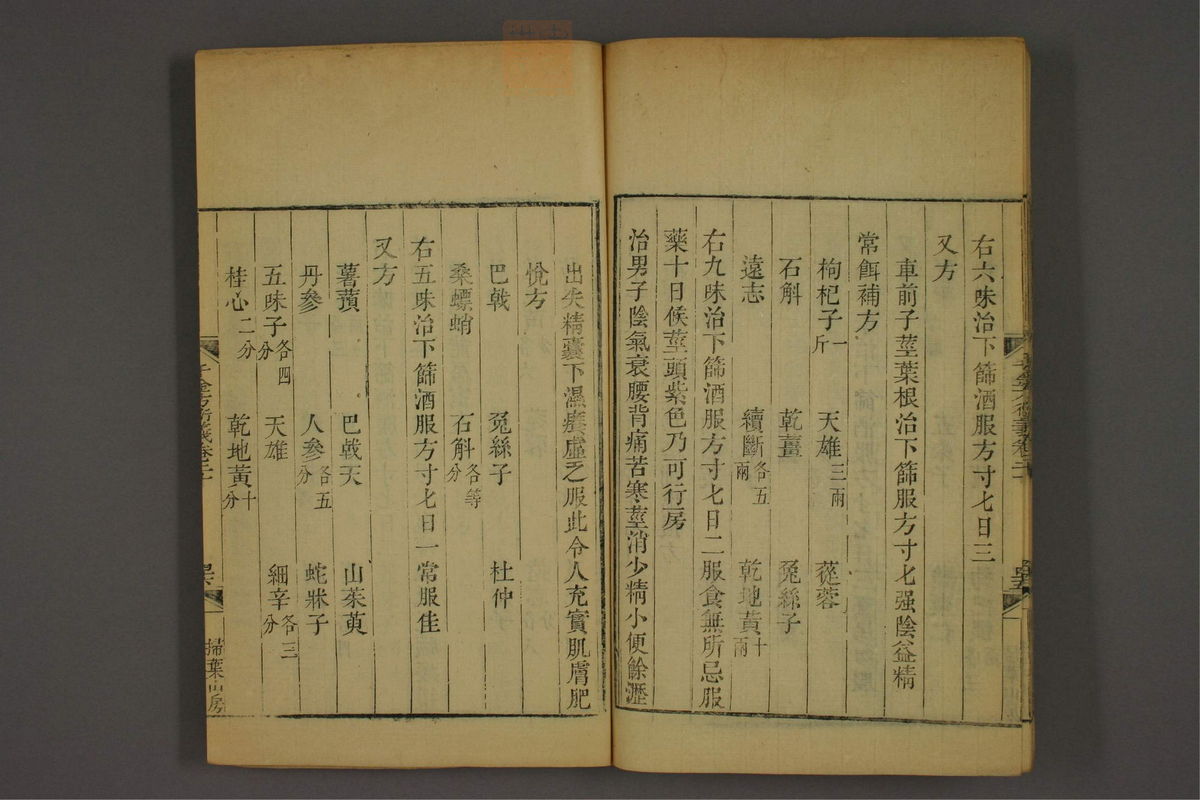 右六味治下篩酒服方寸匕日三
又方
車前子莖葉根治下篩服方寸匕强陰益精
常餌補方
枸杞子一斤 天雄三兩 蓯蓉
石斛 乾薑 菟絲子
遠志 續斷各五兩 乾地黃十兩
右九味治下篩酒服方寸匕日二服食無所忌服
藥十日候莖頭紫色乃可行房
治男子陰氣衰腰背痛苦寒莖消少精小便餘瀝
千金方衍義卷二十
出失精囊下濕癢虛乏服此令人充實肌膚肥
悅方
巴戟 菟絲子 杜仲
桑螵蛸 石斛各等分
右五味治下篩酒服方寸匕日一常服佳
又方
薯蕷 巴戟天 山茱萸
丹參 人參各五分 蛇牀子
五味子各四分 天雄 細辛各三分
桂心二分 乾地黃十分
千金方衍義卷二十 掃葉山房